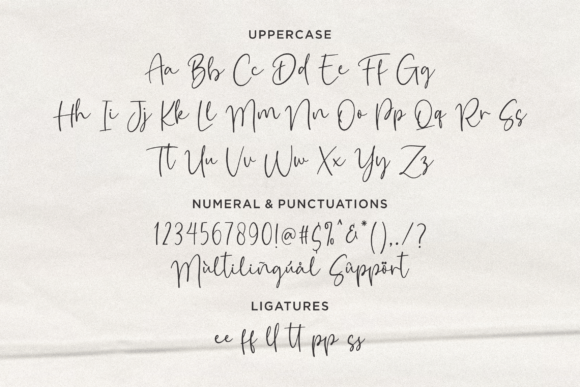 UPPERCASE
Aa Bb Cc Dd Ee Ff Gg
Hh Ii Jj Kk Ll Mm Nn Oo Pp Qq Rr Ss
Tt Uu Vv Ww Xx Yy Zz
NUMERAL & PUNCTUATIONS
1234567890!@#$%^&*(),./?
Mùltilïngúàl Sûppört
LIGATURES
ee ff ll tt pp ss